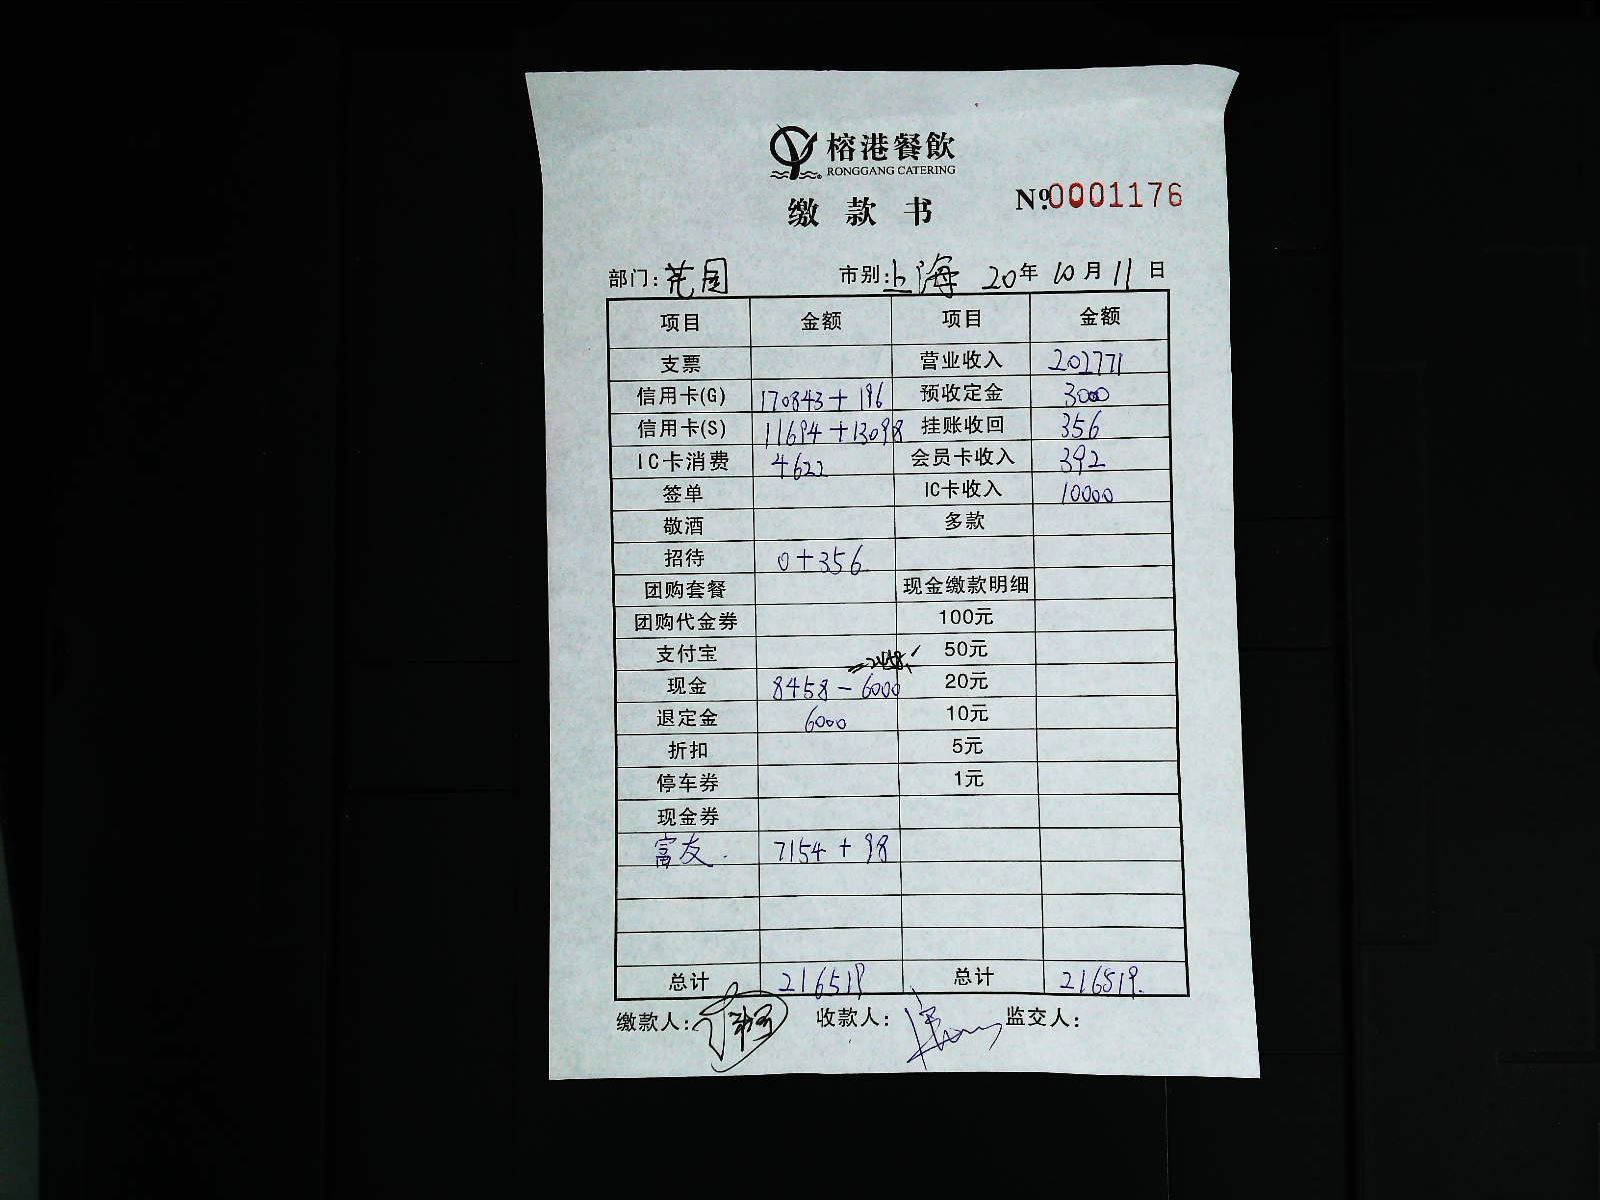 榕港餐飲
RONGGANG CATERING
缴款书
№0001176
部门: 花园 市别: 上海 20年 10月 11日
项目 金额 项目 金额
支票 营业收入 202771
信用卡(G) 170843+196 预收定金 3000
信用卡(S) 11694+13098 挂账收回 356
IC卡消费 4622 会员卡收入 392
签单 IC卡收入 10000
敬酒 多款
招待 0+356
团购套餐 现金缴款明细
团购代金券 100元
支付宝 50元
=2458
现金 8458-6000 20元
退定金 6000 10元
折扣 5元
停车券 1元
现金券
富友 7154+98
总计 216519 总计 216519
缴款人: 收款人: 监交人: